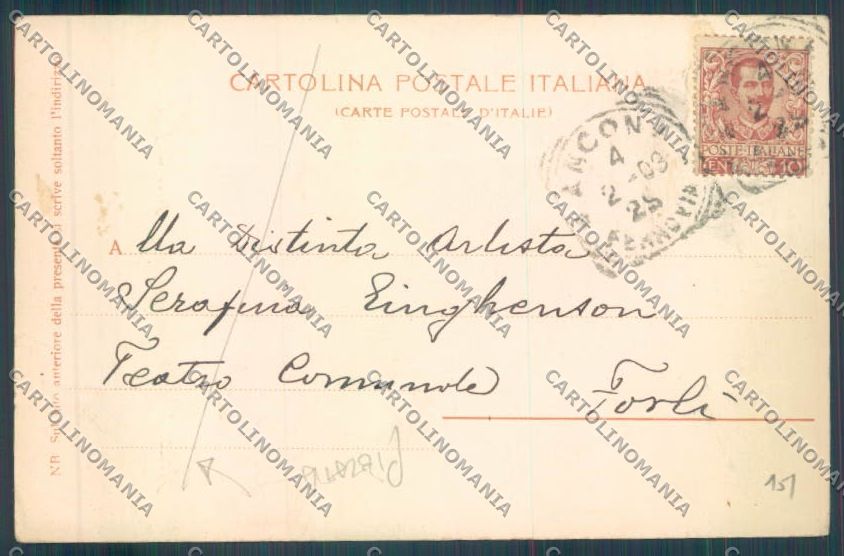 CARTOLINA POSTALE ITALIANA
(CARTE POSTALE D'ITALIE)
POSTE ITALIANE
10
ANCONA
4
2 03
25
FERROVIA
Alla Distinta Artista
Serafina Einghenson
Teatro Comunale
Forlì
NB. Sul lato anteriore della presente si scrive soltanto l'indirizzo
151
CARTOLINOMANIA